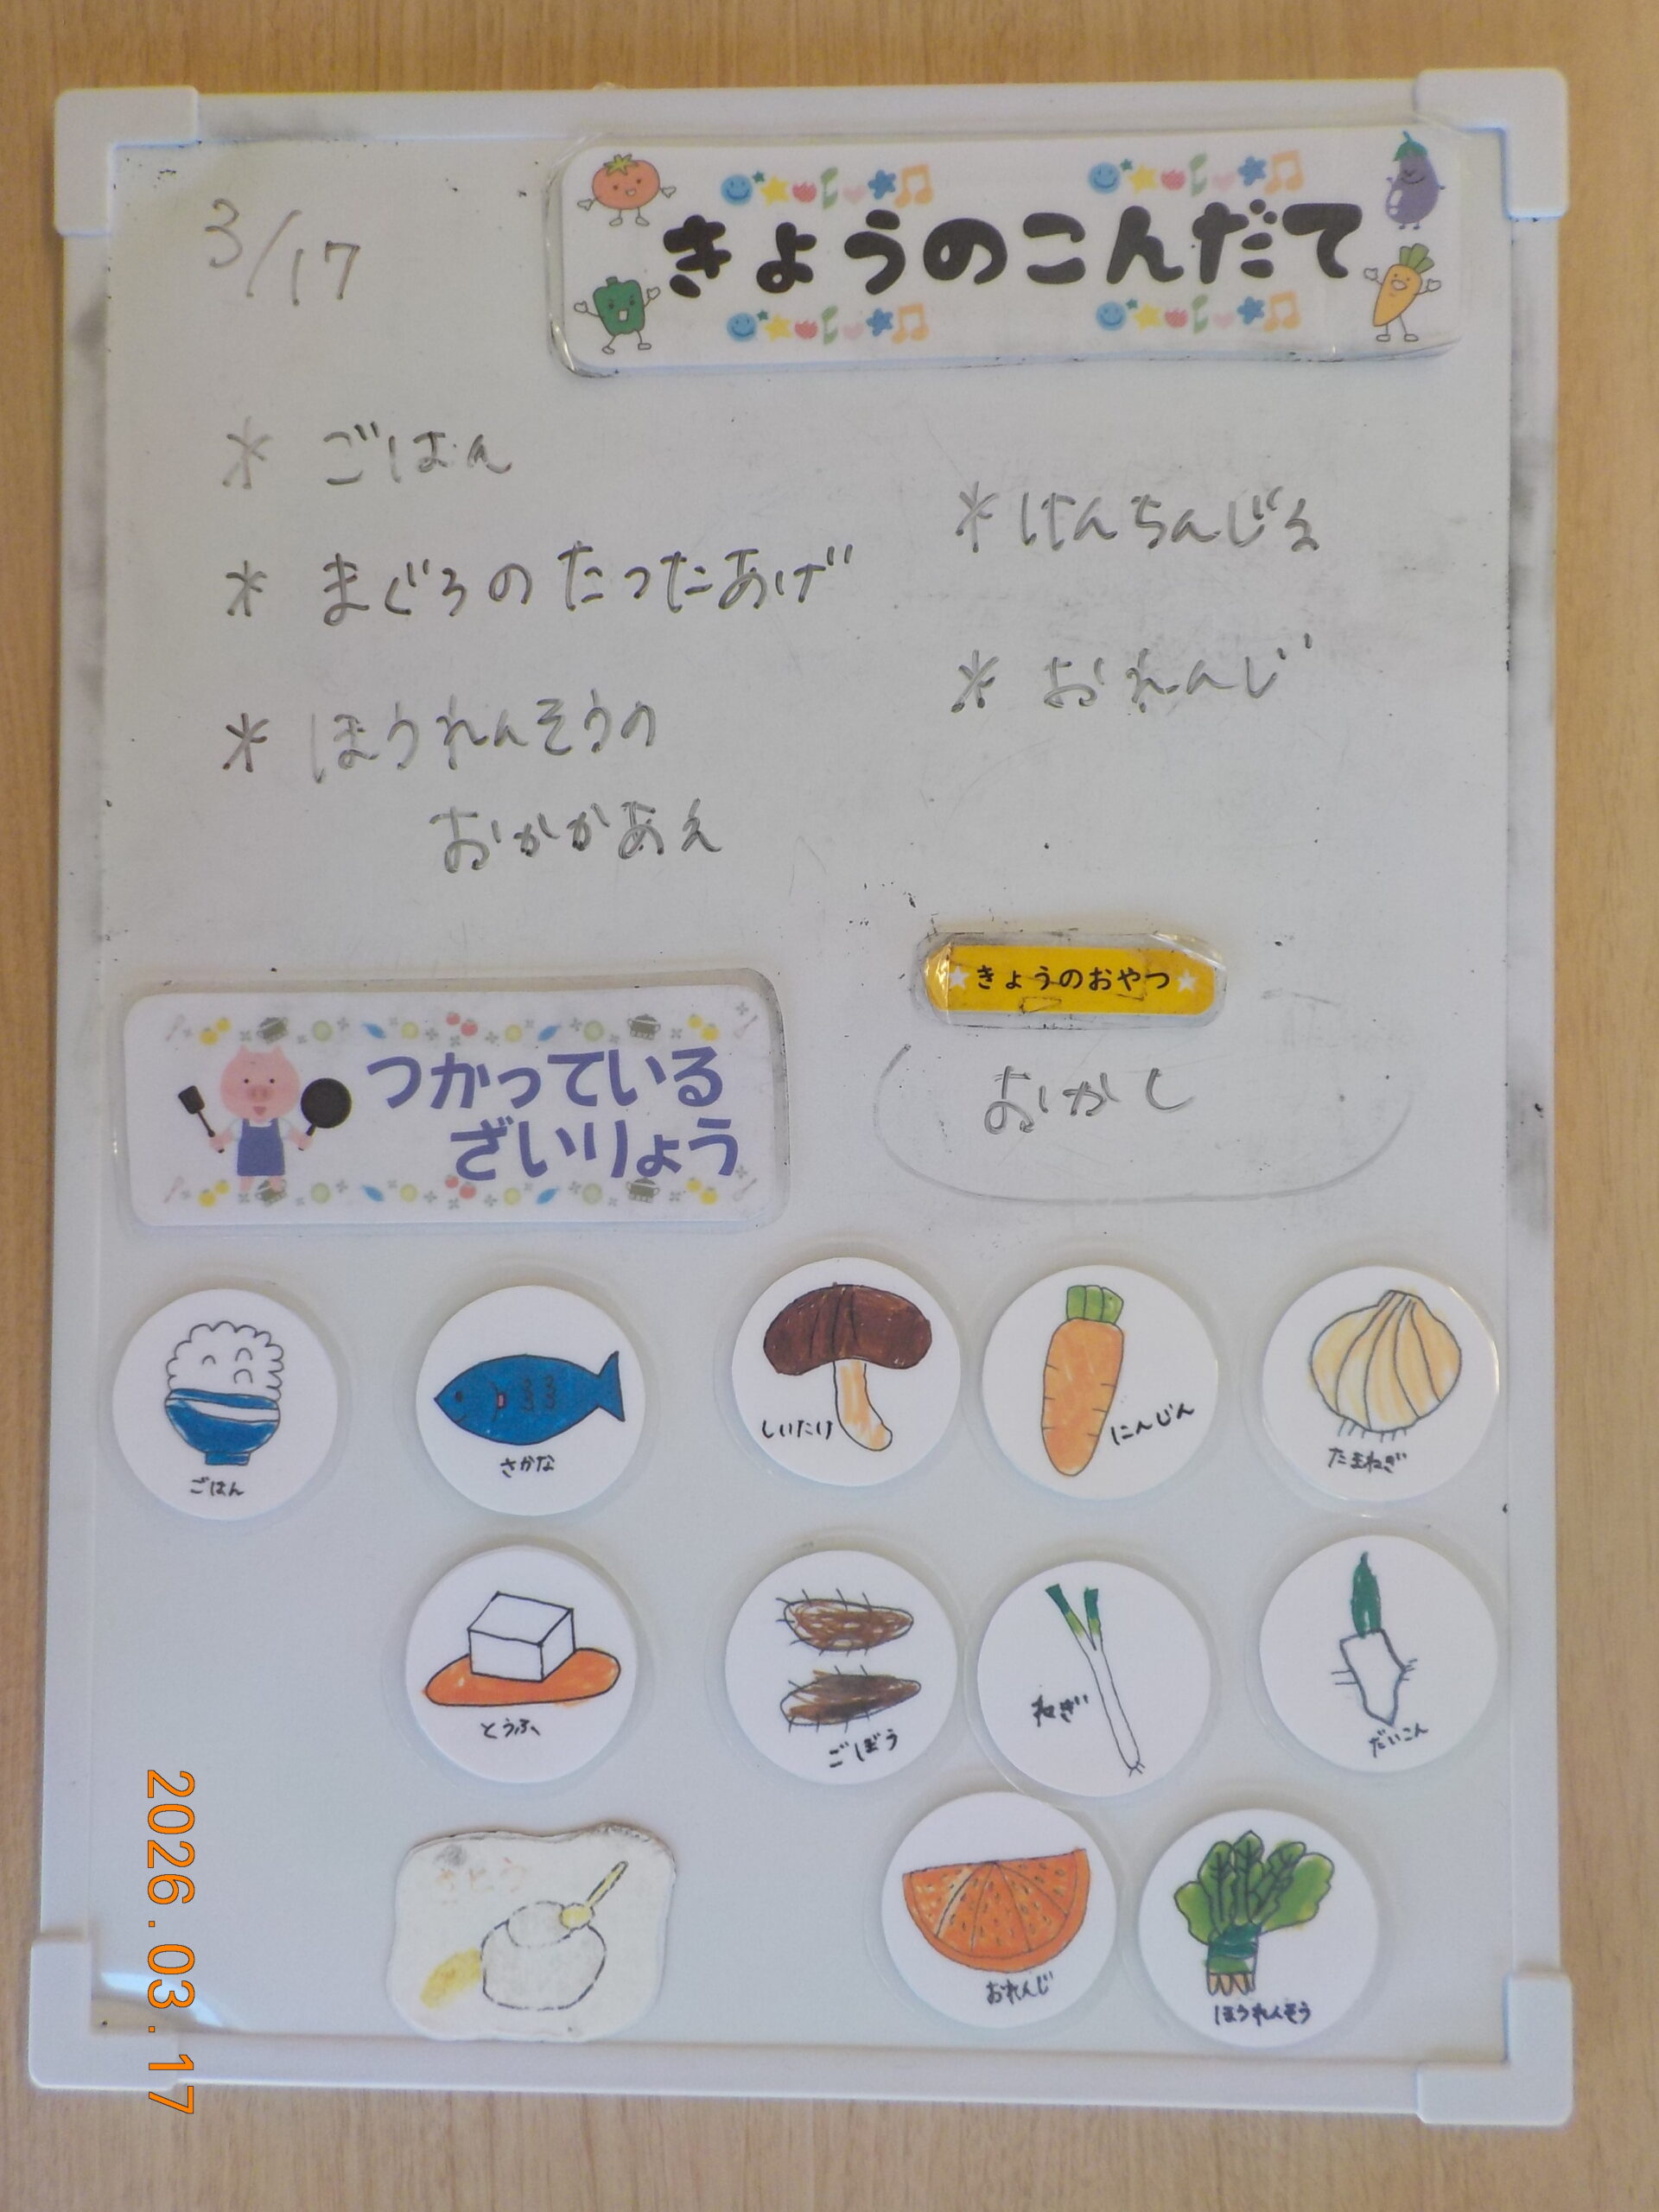 3/17
きょうのこんだて
* ごはん
* まぐろのたったあげ
* ほうれんそうの
おかかあえ
* けんちんじる
* おれんじ
きょうのおやつ
おかし
つかっている
ざいりょう
ごはん
さかな
しいたけ
にんじん
たまねぎ
とうふ
ごぼう
ねぎ
だいこん
さとう
おれんじ
ほうれんそう
2026.03.17